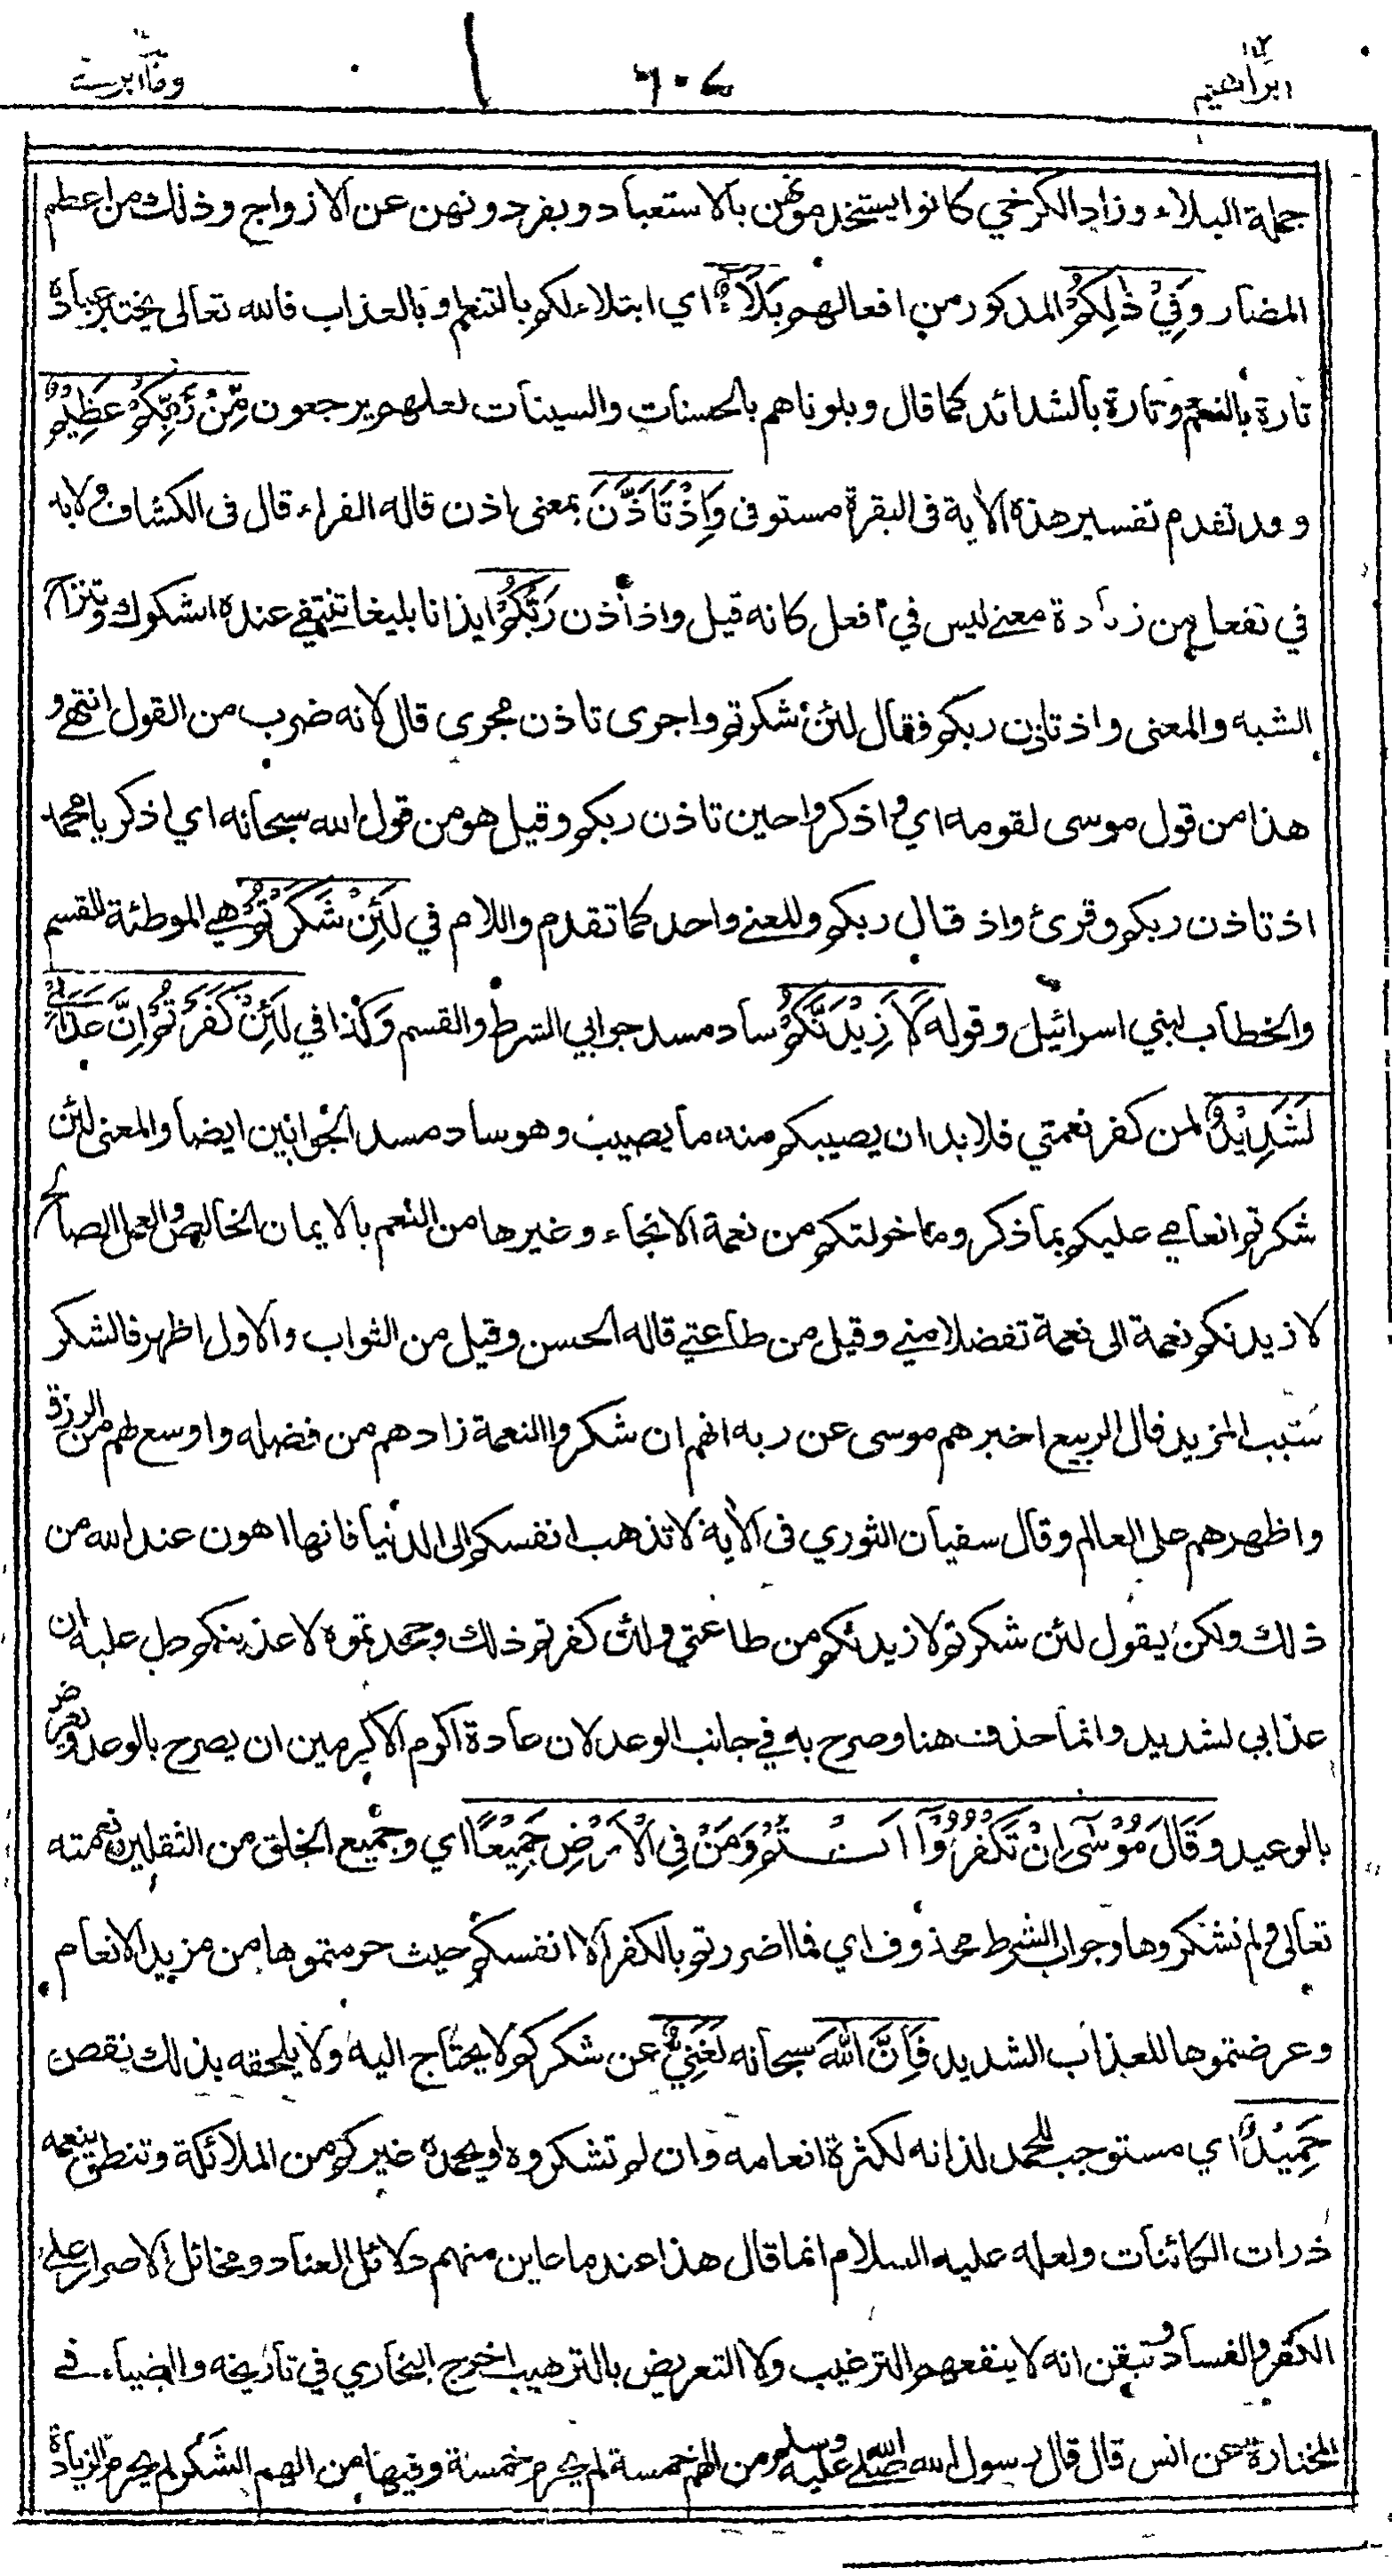 ابراهيم ١٤
٦٠٤
وما أبرئ ١٣
جملة البلاء وزاد الكرخي كانوا يستخدمونهن بالاستعباد ويفردونهن عن الازواج وذلك من اعظم
المضار وَفِيْ ذٰلِكُمْ المذكور من افعالهم بَلَاۤءٌ اي ابتلاء لكم بالتنعم وبالعذاب فالله تعالى يختبر عباده
تارة بالنعم وتارة بالشدائد كما قال وبلوناهم بالحسنات والسيئات لعلهم يرجعون مِّنْ رَّبِّكُمْ عَظِيْمٌ
وقد تقدم تفسير هذه الاية فى البقرة مستوفى وَاِذْ تَاَذَّنَ بمعنى اذن قاله الفراء قال فى الكشاف ولابد
في تفعل من زيادة معنى ليس في أفعل كانه قيل واذ أذن رَبُّكُمْ ايذانا بليغا تنتفي عنده الشكوك وتنزاح
الشبه والمعنى واذ تاذن ربكم فقال لئن شكرتم واجرى تاذن مجرى قال لانه ضرب من القول انتهى و
هذا من قول موسى لقومه اي واذكروا حين تاذن ربكم وقيل هو من قول الله سبحانه اي اذكر يا محمد
اذ تاذن ربكم وقرئ واذ قال ربكم والمعنى واحد كما تقدم واللام في لَئِنْ شَكَرْتُمْ هي الموطئة للقسم
والخطاب لبني اسرائيل وقوله لَاَزِيْدَنَّكُمْ ساد مسد جوابي الشرط والقسم وكذا في لَئِنْ كَفَرْتُمْ اِنَّ عَذَابِيْ
لَشَدِيْدٌ لمن كفر نعمتي فلا بد ان يصيبكم منه ما يصيب وهو ساد مسد الجوابين ايضا والمعنى لئن
شكرتم انعامي عليكم بما ذكر وما خولتكم من نعمة الانجاء وغيرها من النعم بالايمان الخالص والعمل الصالح
لازيدنكم نعمة الى نعمة تفضلا مني وقيل من طاعتي قاله الحسن وقيل من الثواب والاول اظهر فالشكر
سبب المزيد قال الربيع اخبرهم موسى عن ربه انهم ان شكروا النعمة زادهم من فضله واوسع لهم من الرزق
واظهرهم على العالم وقال سفيان الثوري فى الاية لا تذهب انفسكم الى الدنيا فانها اهون عند الله من
ذلك ولكن يقول لئن شكرتم لازيدنكم من طاعتي ولئن كفرتم ذلك وجحدتموه لاعذبنكم دل عليه ان
عذابي لشديد وانما حذف هنا وصرح به في جانب الوعد لان عادة اكرم الاكرمين ان يصرح بالوعد ويعرض
بالوعيد وَقَالَ مُوْسٰۤى اِنْ تَكْفُرُوْۤا اَنْتُمْ وَمَنْ فِى الْاَرْضِ جَمِيْعًا اي وجميع الخلق من الثقلين نعمته
تعالى ولم تشكروها وجواب الشرط محذوف اي فما اضررتم بالكفر الا انفسكم حيث حرمتموها من مزيد الانعام
وعرضتموها للعذاب الشديد فَاِنَّ اللّٰهَ سبحانه لَغَنِيٌّ عن شكركم لا يحتاج اليه ولا يلحقه بذلك نقص
حَمِيْدٌ اي مستوجب للحمد لذاته لكثرة انعامه وان لم تشكروه او يحمده غيركم من الملائكة وتنطق بنعمه
ذرات الكائنات ولعله عليه السلام انما قال هذا عند ما عاين منهم دلائل العناد ومخائل الاصرار على
الكفر والفساد وتيقن انه لا ينفعهم الترغيب ولا التعريض بالترهيب اخرج البخاري في تاريخه والضياء في
المختارة عن انس قال قال رسول الله صلى الله عليه وسلم من الهم خمسة لم يحرم خمسة وفيها من الهم الشكر لم يحرم الزيادة